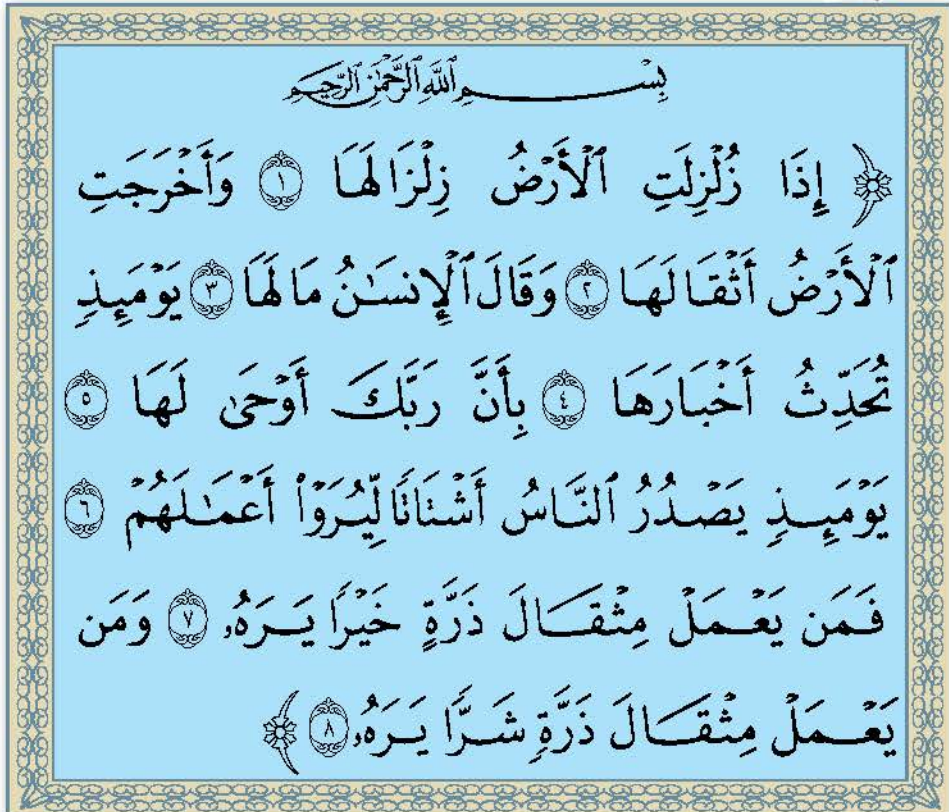 بِسْمِ ٱللَّهِ ٱلرَّحْمَٰنِ ٱلرَّحِيمِ
﴿ إِذَا زُلْزِلَتِ ٱلْأَرْضُ زِلْزَالَهَا ١ وَأَخْرَجَتِ
ٱلْأَرْضُ أَثْقَالَهَا ٢ وَقَالَ ٱلْإِنسَٰنُ مَا لَهَا ٣ يَوْمَئِذٍ
تُحَدِّثُ أَخْبَارَهَا ٤ بِأَنَّ رَبَّكَ أَوْحَىٰ لَهَا ٥
يَوْمَئِذٍ يَصْدُرُ ٱلنَّاسُ أَشْتَاتًا لِّيُرَوْا۟ أَعْمَٰلَهُمْ ٦
فَمَن يَعْمَلْ مِثْقَالَ ذَرَّةٍ خَيْرًا يَرَهُۥ ٧ وَمَن
يَعْمَلْ مِثْقَالَ ذَرَّةٍ شَرًّا يَرَهُۥ ٨ ﴾